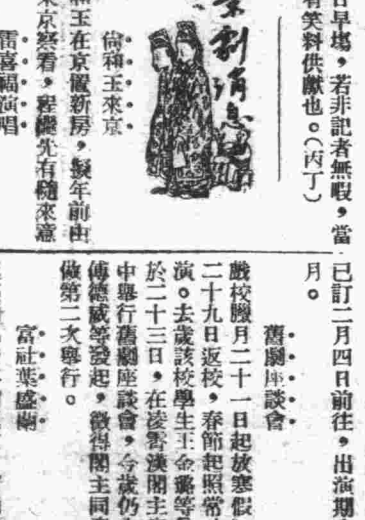 日早場，若非記者無暇，當
有笑料供獻也。（丙丁）
京劇消息
尙和玉來京
和玉在京置新房，擬年前由
來京察看，程繼先有隨來意
雷喜福演唱
已訂二月四日前往，出演期
月。
舊劇座談會
戲校臘月二十一日起放寒假
二十九日返校，春節起照常
演。去歲該校學生王金璐等
於二十三日，在凌雲漢閣主
中舉行舊劇座談會，今歲仍
傅德威等發起，徵得閣主同
做第二次舉行。
富社葉盛蘭